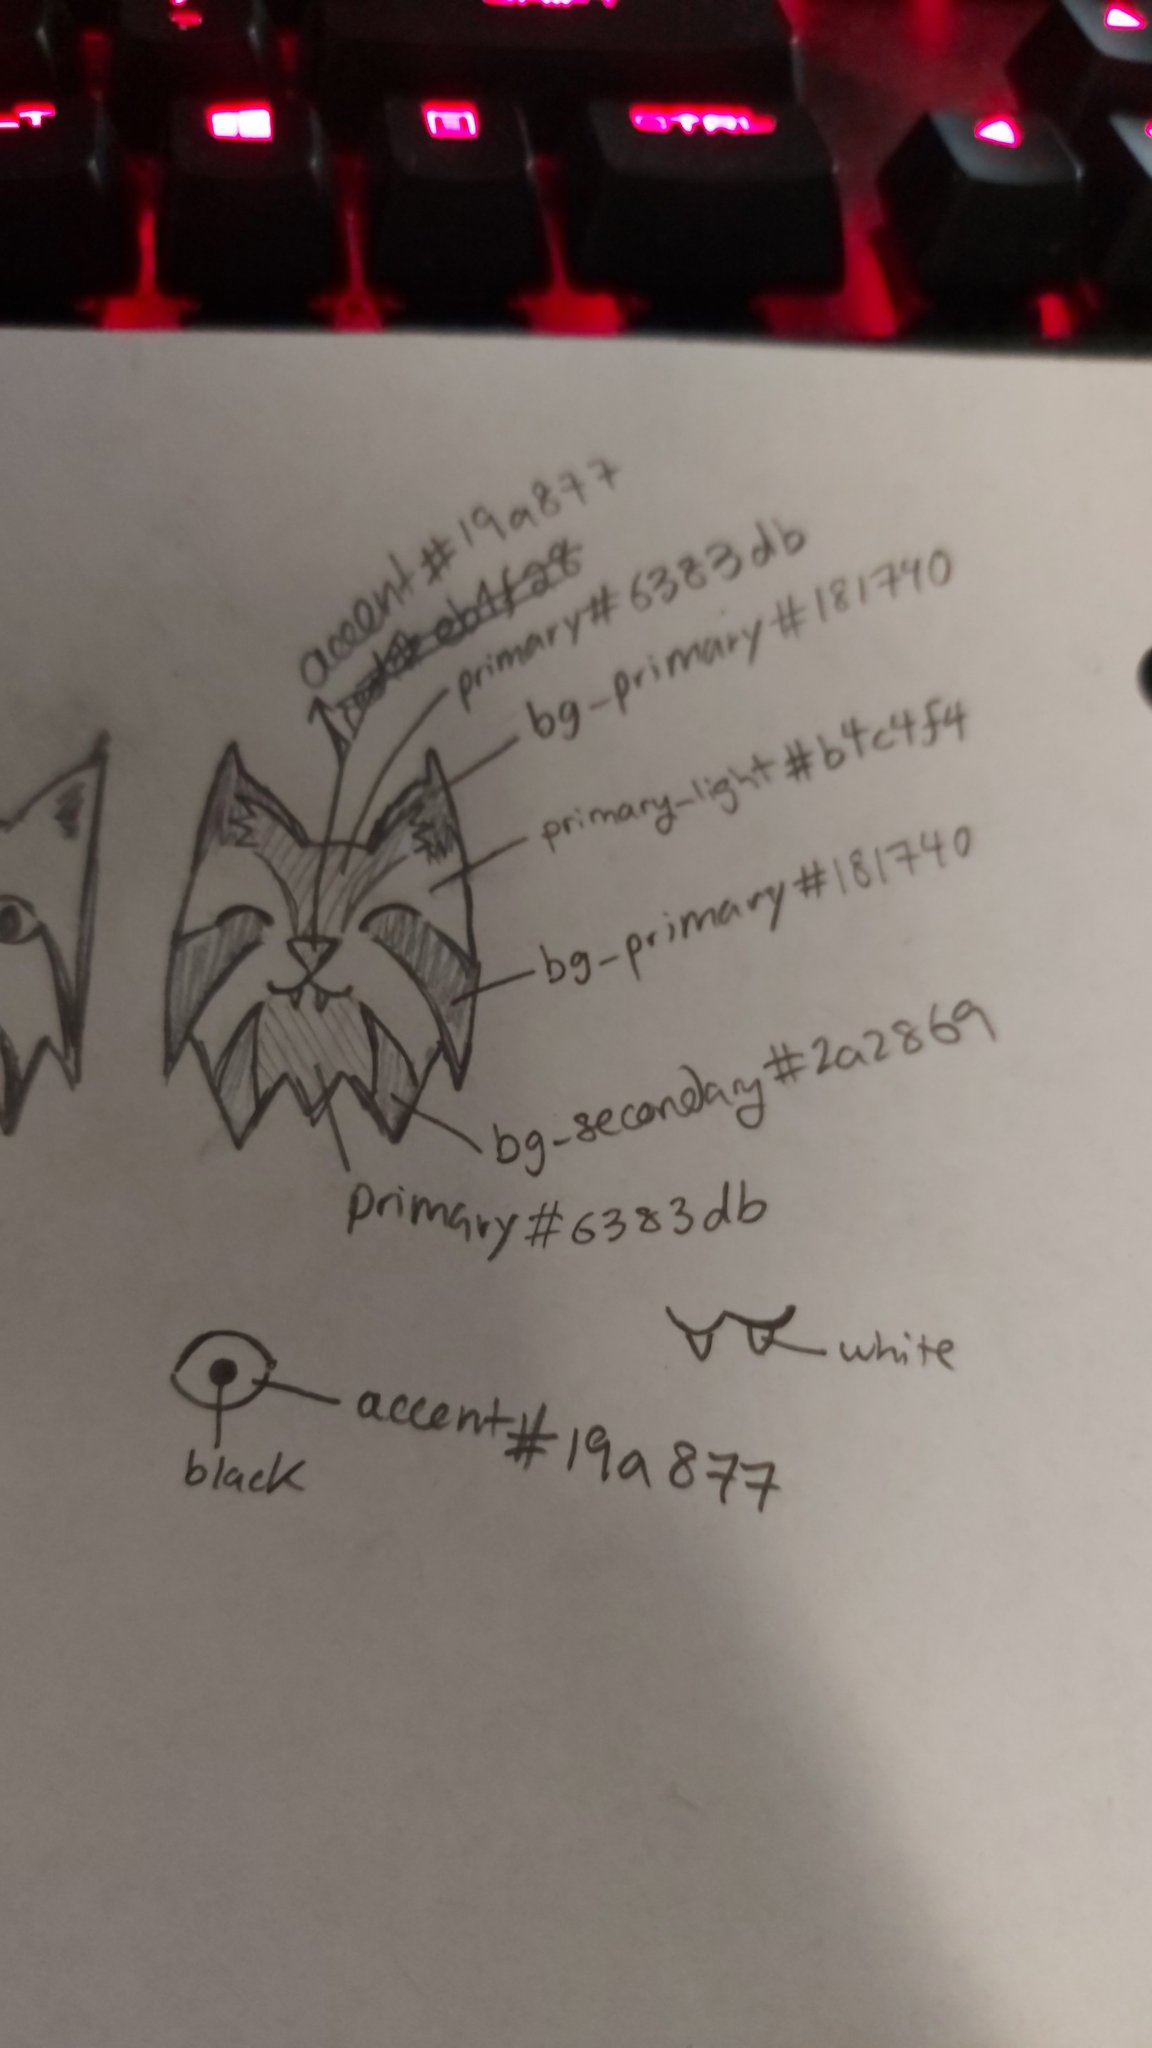 accent#19a877
primary#6383db
bg-primary#181740
primary-light#b4c4f4
bg-primary#181740
bg-secondary#2a2869
primary#6383db
white
accent#19a877
black